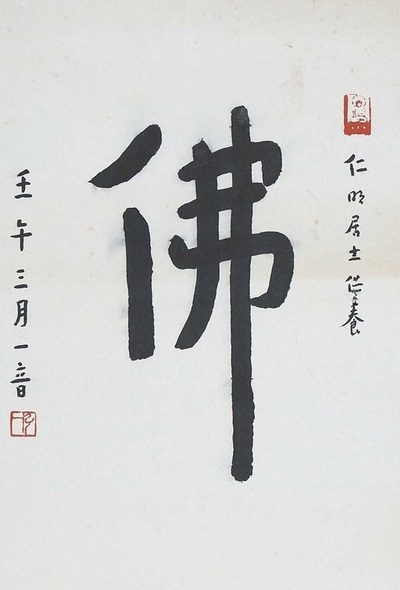 仁明居士供養
佛
壬午三月一音